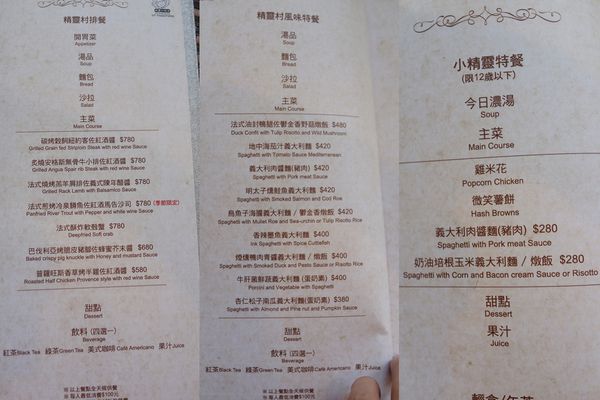 精靈村排餐
開胃菜
Appetizer
湯品
Soup
麵包
Bread
沙拉
Salad
主菜
Main Course
碳烤穀飼紐約客佐紅酒醬 $780
Grilled Grain fed Striploin Steak with red wine Sauce
炙燒安格斯無骨牛小排佐紅酒醬 $780
Grilled Angus Spair rib Steak with red wine Sauce
法式燒烤羔羊肩排佐義式陳年醋醬 $780
Grilled Rack Lamb with Balsamico Sauce
法式煎烤冷泉鱒魚佐紅酒馬告沙司 $780 (季節限定)
Panfried River Trout with Pepper and white wine Sauce
法式酥炸軟殼蟹 $780
Deepfried Soft crab
巴伐利亞烤脆皮豬腳佐蜂蜜芥末醬 $680
Baked crispy pig knuckle with Honey and mustard Sauce
普羅旺斯香草烤半雞佐紅酒醬 $580
Roasted Half Chicken Provence style with red wine Sauce
甜點
Dessert
飲料 (四選一)
Beverage
紅茶Black Tea 綠茶Green Tea 美式咖啡Café Americano 果汁Juice
※以上餐點全天候供餐
※每人最低消費$100元
精靈村風味特餐
湯品
Soup
麵包
Bread
沙拉
Salad
主菜
Main Course
法式油封鴨腿佐鬱金香野菇燉飯 $480
Duck Confit with Tulip Risotto and Wild Mushroom
地中海茄汁義大利麵 $420
Spaghetti with Tomato Sauce Mediterranean
義大利肉醬麵(豬肉) $420
Spaghetti with Pork meat Sauce
明太子燻鮭魚義大利麵 $420
Spaghetti with Smoked Salmon and Cod Roe
烏魚子海膽義大利麵 / 鬱金香燉飯 $420
Spaghetti with Mullet Roe and Sea-urchin or Tulip Risotto Rice
香辣墨魚義大利麵 $400
Ink Spaghetti with Spice Cuttlefish
煙燻鴨肉青醬義大利麵 / 燉飯 $400
Spaghetti with Smoked Duck and Pesto Sauce or Risotto Rice
牛肝蕈鮮蔬義大利麵 (蛋奶素) $400
Porcini and Vegetable with Spaghetti
杏仁松子南瓜義大利麵(蛋奶素) $380
Spaghetti with Almond and Pine nut and Pumpkin Sauce
甜點
Dessert
飲料 (四選一)
Beverage
紅茶Black Tea 綠茶Green Tea 美式咖啡Café Americano 果汁Juice
※以上餐點全天候供餐
※每人最低消費$100元
小精靈特餐
(限12歲以下)
今日濃湯
Soup
主菜
Main Course
雞米花
Popcorn Chicken
微笑薯餅
Hash Browns
義大利肉醬麵(豬肉) $280
Spaghetti with Pork meat Sauce
奶油培根玉米義大利麵 / 燉飯 $280
Spaghetti with Corn and Bacon cream Sauce or Risotto
甜點
Dessert
果汁
Juice